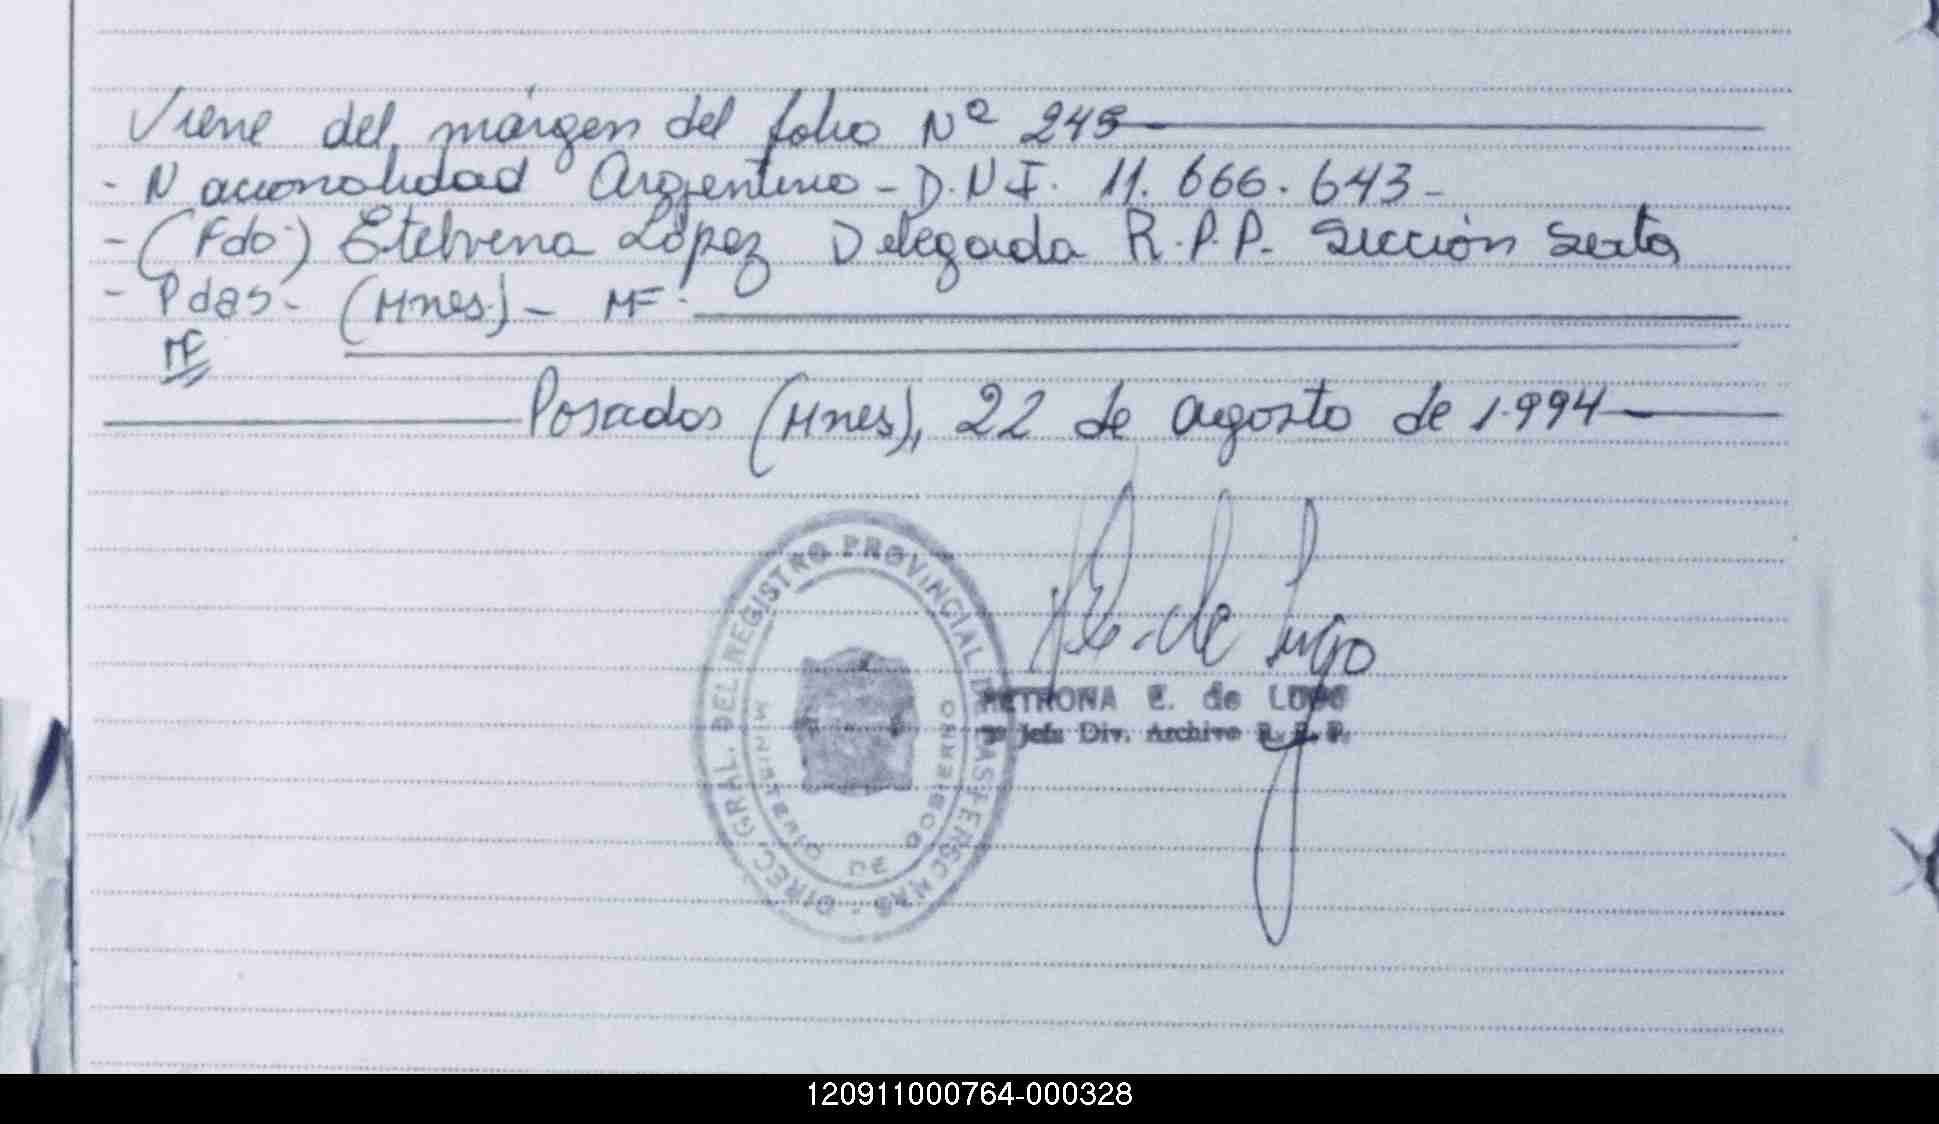 Viene del márgen del folio Nº 245
- Nacionalidad Argentino - D.N.I. 11.666.643 -
- (Fdo.) Etelvina López Delegada R.P.P. Sección Sexta
- Pdas - (Mnes.) - MF.
MF
Posadas (Mnes), 22 de agosto de 1.994
E. de Lugo
DIREC. GRAL. DEL REGISTRO PROVINCIAL DE LAS PERSONAS -
MINISTERIO DE GOBIERNO
PETRONA E. de LUGO
Jefa Div. Archivo R. P. P.
120911000764-000328